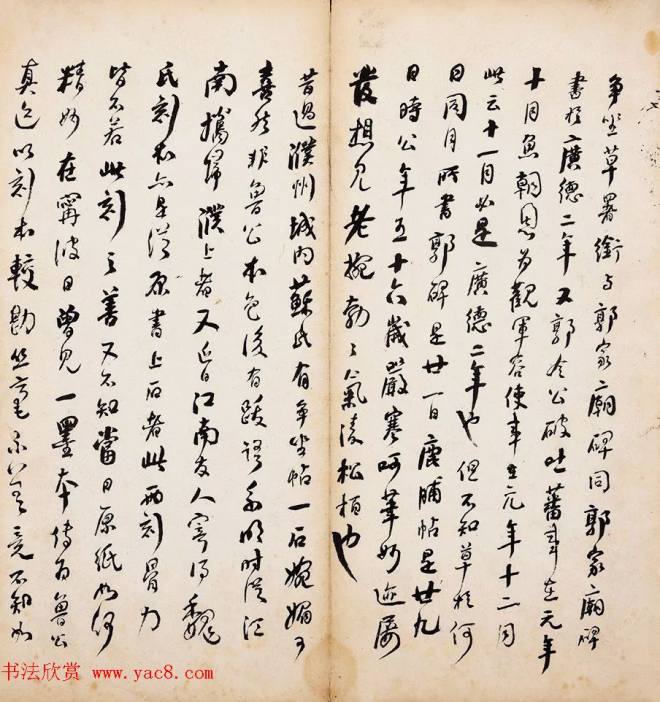 争坐草署銜与郭家廟碑同郭家廟碑
書於廣德二年又郭令公破吐蕃事在元年
十月魚朝恩为觀軍容使事在元年十二月
此云十一月必是廣德二年也但不知草於何
日同月所書郭碑是廿一日鹿脯帖是廿九
日時公年五十六歲嚴寒呵筆妙迹屡
發想見老挽勃々氣凌松柏也
昔過濮州城内蘇氏有争坐帖一石婉媚可
喜然非魯公本色後有跋語永明時從江
南攜歸濮上者又近日江南友人寄得魏
氏刻本亦是從原書上石者此兩刻骨力
皆不若此刻之善又不知當日原紙如何
精妙在寧波日曾見一墨本傳为魯公
真迹以刻本較勘丝毫不差竟不知如
书法欣赏 www.yac8.com